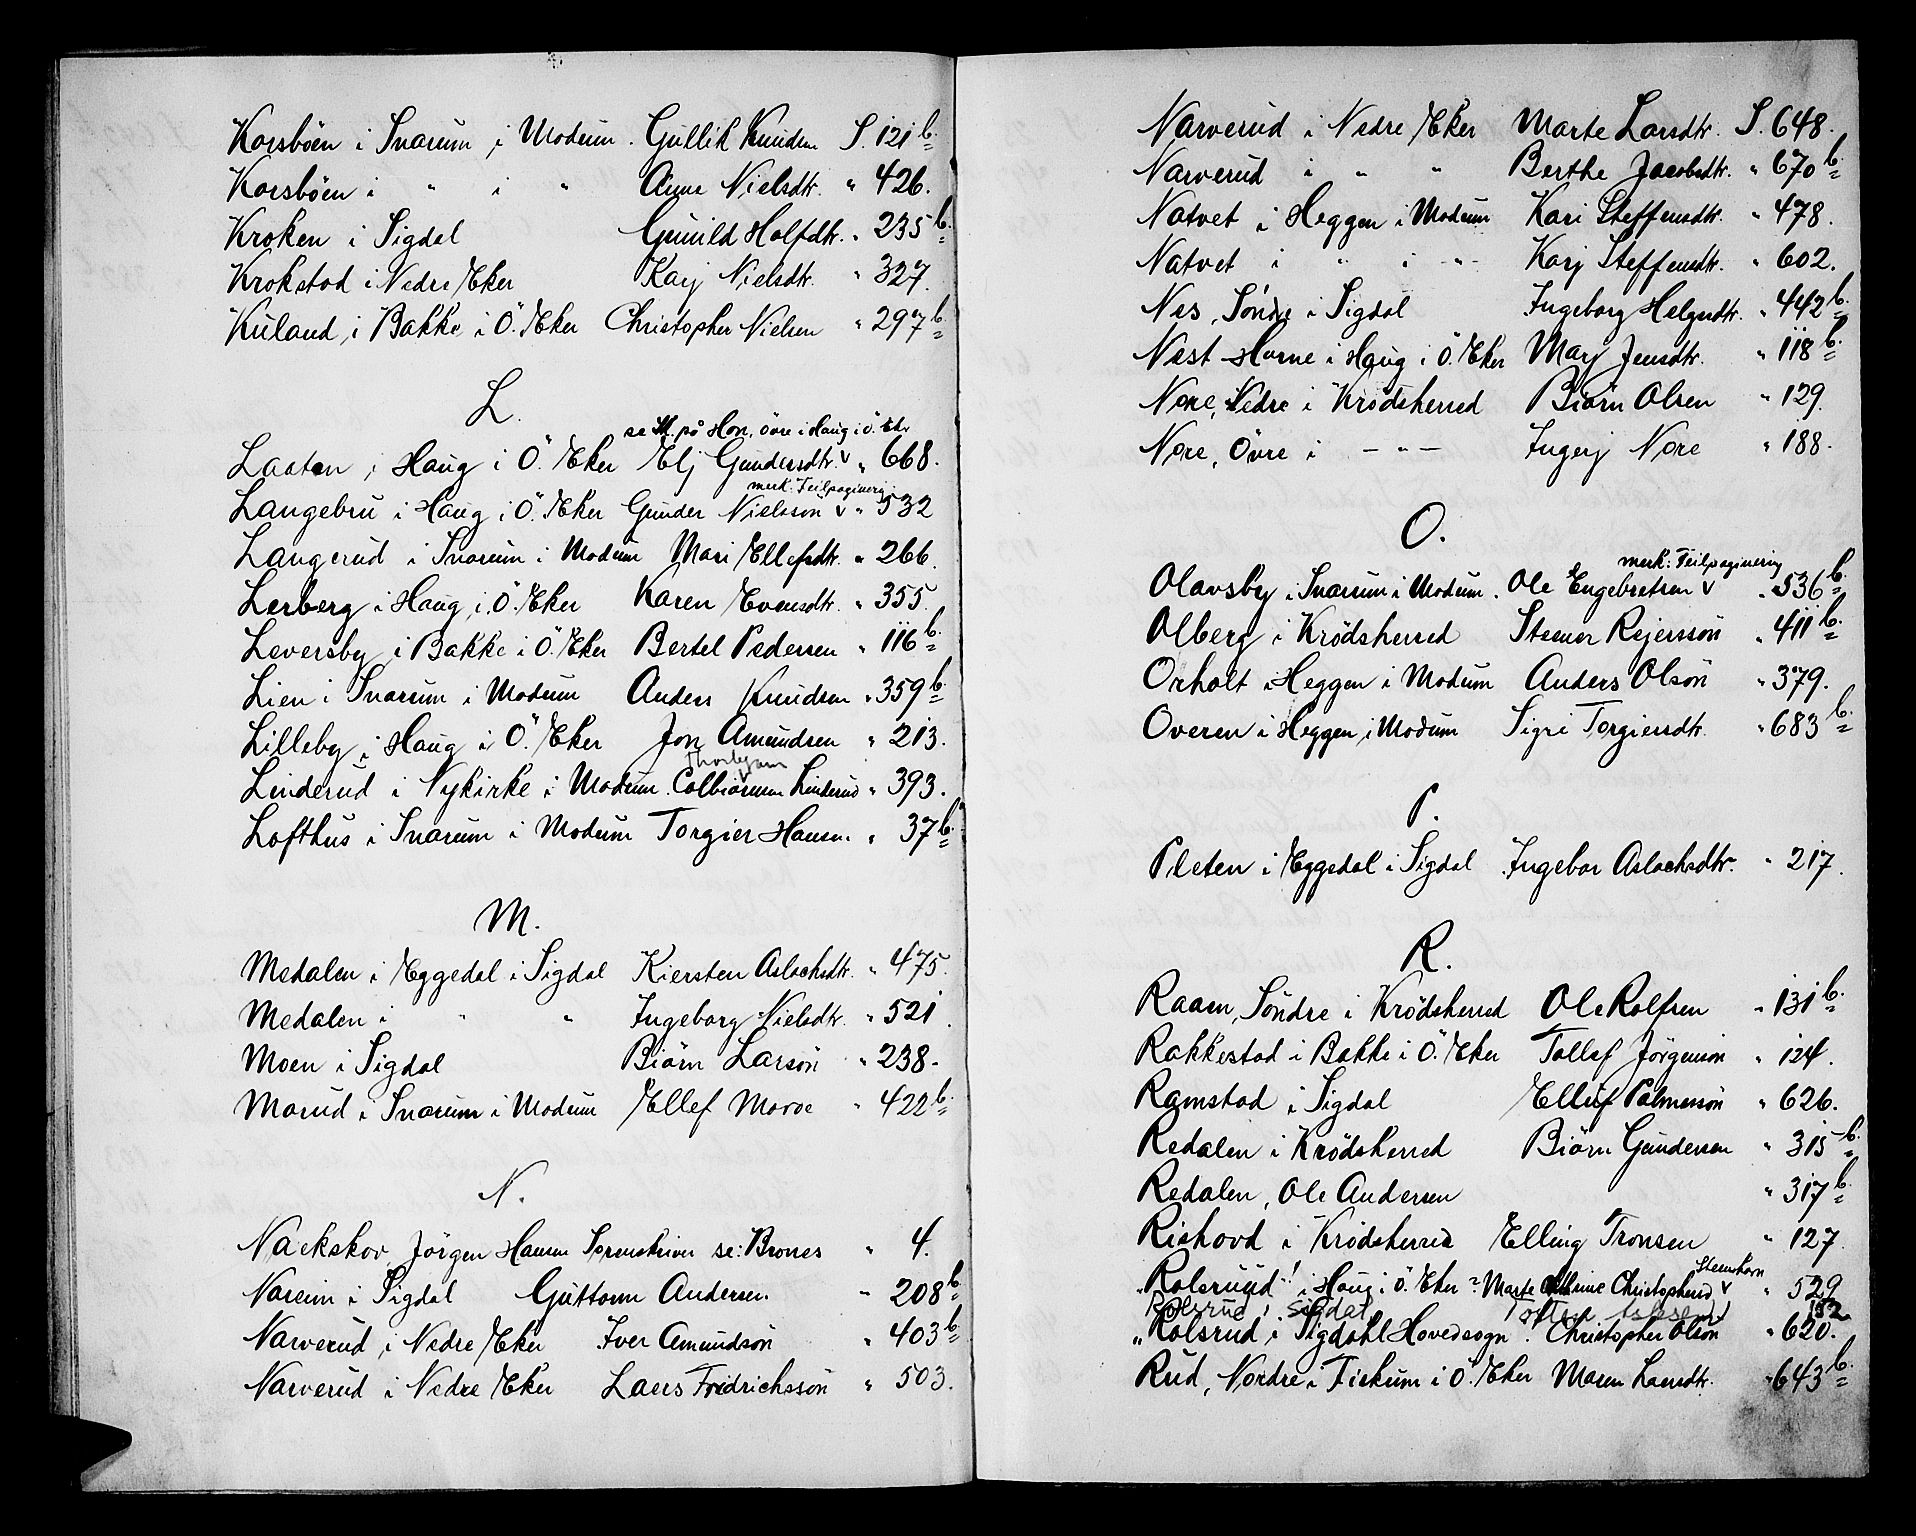 Korsböen i Snarum i Modum. Gullik Knudsen S. 121 b.
Korsböen i " i " Anne Nielsdtr. " 426.
Kroken i Sigdal Gunild Halfdtr. " 235 b.
Krokstad i Nedre Eker Karj Nielsdtr. " 327.
Kuland i Bakke i Ö. Eker Christopher Nielsen " 297 b.
L.
se St. på Hon, övre i Haug i Ö. Eker
Laaten i Haug i Ö. Eker Elj Gundersdtr. v " 668.
merk: Feilpaginering
Langebru i Haug i Ö. Eker Gunder Nielsson v " 532
Langerud i Snarum i Modum Mari Ellefsdtr. " 266.
Lerberg i Haug i Ö. Eker Karen Evensdtr. " 355.
Leversby i Bakke i Ö. Eker Bertel Pedersen " 116 b.
Lien i Snarum i Modum Anders Knudsen " 359 b.
Lilleby i Haug i Ö. Eker Jon Amundsen " 213.
Linderud i Nykirke i Modum. Colbiörnsen Linderud " 393.
Lofthus i Snarum i Modum Torgier Hansen. " 37 b.
M.
Medalen i Eggedal i Sigdal Kiersten Aslachsdtr. " 475.
Medalen i " " Ingeborg Nielsdtr. " 521.
Moen i Sigdal Biörn Larsön " 238.
Morud i Snarum i Modum Ellef Moroe " 422 b.
N.
Nackskov, Jörgen Hansen Sorenskriver se: Brones " 4.
Nareim i Sigdal Guttorm Andersen. " 208 b.
Narverud i Nedre Eker Iver Amundsön " 403 b.
Narverud i Nedre Eker Laers Fridrichssön " 503.
Narverud i Nedre Eker Marte Larsdtr. S. 648.
Narverud i " " Berthe Jacobsdtr. " 670 b.
Natvet i Heggen i Modum Kari Steffensdtr. " 478.
Natvet i " i " Karj Steffensdtr. " 602.
Nes, Söndre i Sigdal Ingeborg Helgesdtr. " 442 b.
Nest Horne i Haug i Ö. Eker Marj Jensdtr. " 118 b.
Nore, Nedre i Krödsherred Biörn Olsen " 129.
Nore, Övre i — " — Ingerj Nore " 188.
O.
merk: Feilpaginering
Olavsby i Snarum i Modum. Ole Engebretsen v " 536 b.
Olberg i Krödsherred Steener Rejerssön " 411 b.
Orholt i Heggen i Modum Anders Olsön " 379.
Overen i Heggen i Modum Sigri Torgiersdtr. " 683 b.
P.
Pleten i Eggedal i Sigdal Ingebor Aslachsdtr. " 217.
R.
Raaen, Söndre i Krödsherred Ole Rolfsen " 131 b.
Rakkestad i Bakke i Ö. Eker Tollef Jörgensön " 124.
Ramstad i Sigdal Elluf Palmesön " 626.
Redalen i Krödsherred Biörn Gundersen " 315 b.
Redalen, Ole Andersen " 317 b.
Rishovd i Krödsherred Elling Tronsen " 127.
Steenshorn
"Rolsruud"! i Haug i Ö. Eker? Marte Christophersd v " 529
Rolsrud i Sigdal 152
"Rolsrud i Sigdahl Hovedsogn". Christopher Olsön " 620.
Rud, Nordre i Fiskum i Ö. Eker Maren Laersdtr. " 643 b.